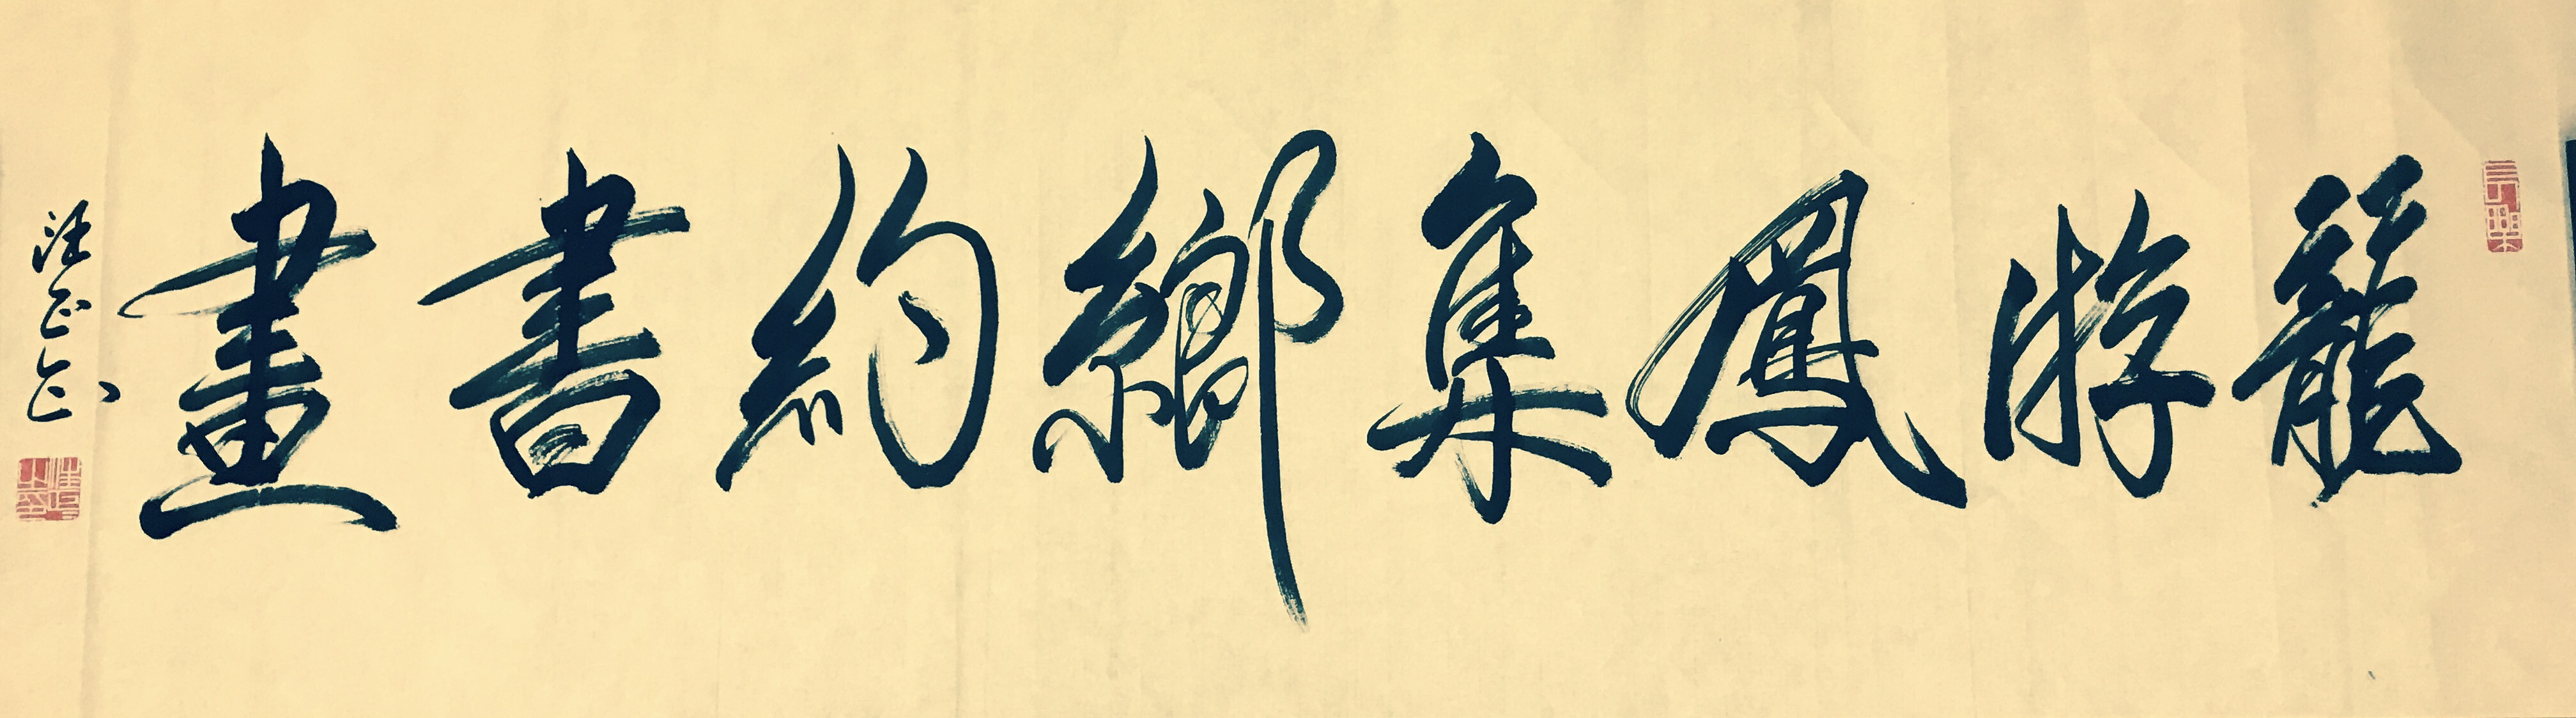 龍游鳳集鄉約書畫
汪正